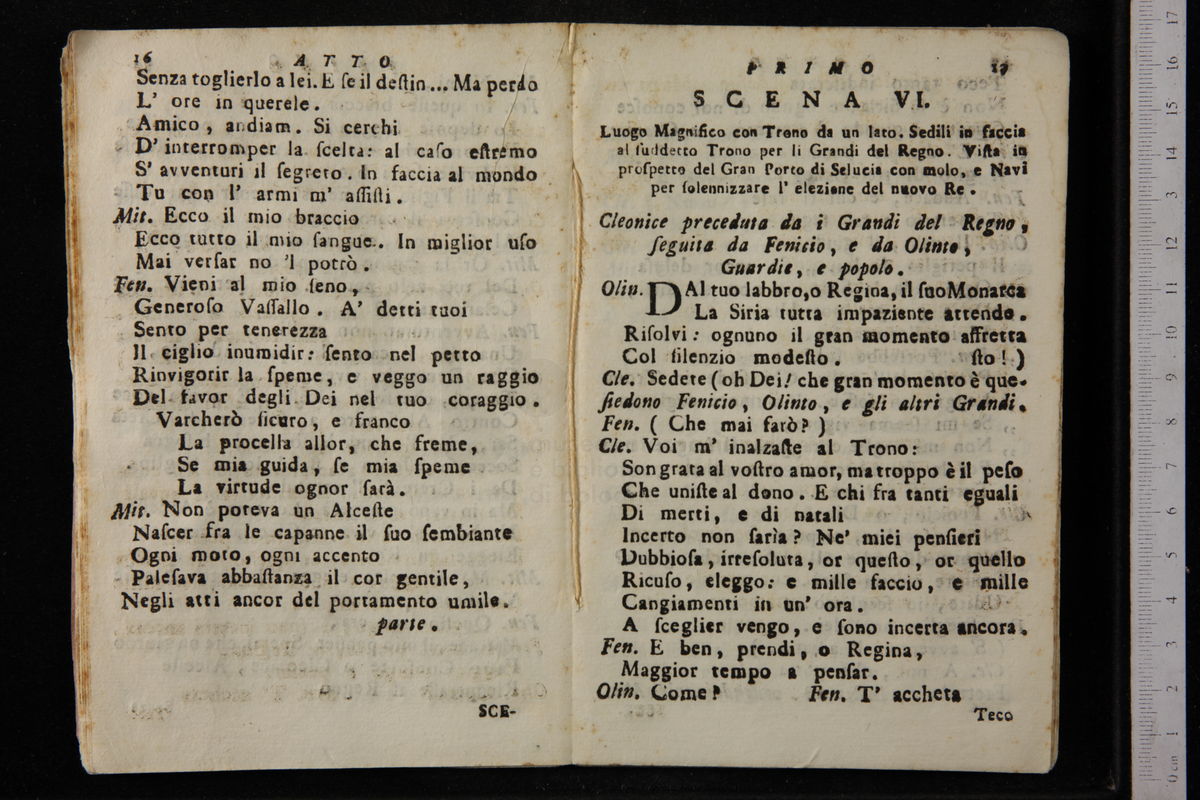 16
A T T O
Senza toglierlo a lei. E ſe il deſtin ... Ma perdo
L' ore in querele.
Amico, andiam. Si cerchi
D' interromper la ſcelta: al caſo eſtremo
S' avventuri il ſegreto. In faccia al mondo
Tu con l' armi m' aſſiſti.
Mit. Ecco il mio braccio
Ecco tutto il mio ſangue.. In miglior uſo
Mai verſar no 'l potrò.
Fen. Vieni al mio ſeno,
Generoſo Vaſſallo. A' detti tuoi
Sento per tenerezza
Il ciglio inumidir: ſento nel petto
Rinvigorir la ſpeme, e veggo un raggio
Del favor degli Dei nel tuo coraggio.
Varcherò ſicuro, e franco
La procella allor, che freme,
Se mia guida, ſe mia ſpeme
La virtude ognor ſarà.
Mit. Non poteva un Alceſte
Naſcer fra le capanne il ſuo ſembiante
Ogni moto, ogni accento
Paleſava abbaſtanza il cor gentile,
Negli atti ancor del portamento umile.
parte.
SCE-
P R I M O
17
S C E N A VI.
Luogo Magnifico con Trono da un lato. Sedili in faccia
al ſuddetto Trono per li Grandi del Regno. Viſta in
proſpetto del Gran Porto di Selucia con molo, e Navi
per ſolennizzare l' elezione del nuovo Re.
Cleonice preceduta da i Grandi del Regno,
ſeguita da Fenicio, e da Olinto,
Guardie, e popolo.
Olin. DAl tuo labbro, o Regina, il ſuo Monarca
La Siria tutta impaziente attende.
Riſolvi: ognuno il gran momento affretta
Col ſilenzio modeſto. ſto! )
Cle. Sedete ( oh Dei! che gran momento è que-
ſiedono Fenicio, Olinto, e gli altri Grandi.
Fen. ( Che mai farò? )
Cle. Voi m' inalzaſte al Trono:
Son grata al voſtro amor, ma troppo è il peſo
Che uniſte al dono. E chi fra tanti eguali
Di merti, e di natali
Incerto non ſaria? Ne' miei penſieri
Dubbioſa, irreſoluta, or queſto, or quello
Ricuſo, eleggo: e mille faccio, e mille
Cangiamenti in un' ora.
A ſceglier vengo, e ſono incerta ancora.
Fen. E ben, prendi, o Regina,
Maggior tempo a penſar.
Olin. Come? Fen. T' accheta
Teco